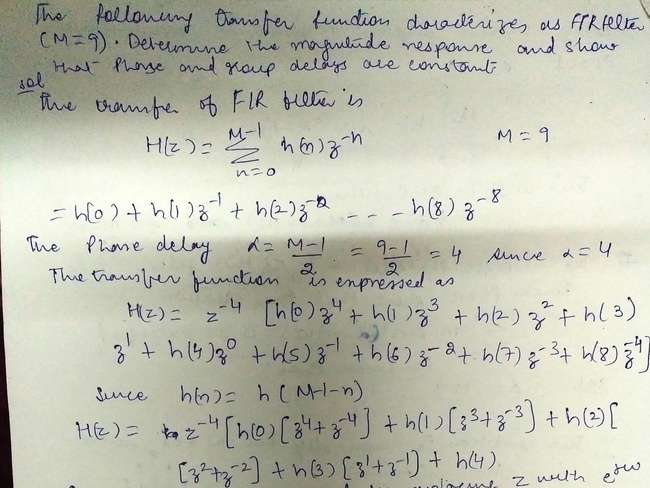 The following transfer function characterizes as FIR filter
(M=9). Determine the magnitude response and show
that Phase and group delays are constant
sol
The transfer of FIR filter is
H(z) = M-1 Σ n=0 h(n) z^-n M = 9
= h(0) + h(1) z^-1 + h(2) z^-2 - - - h(8) z^-8
The Phase delay α = M-1/2 = 9-1/2 = 4 since α = 4
The transfer function is expressed as
H(z) = z^-4 [h(0) z^4 + h(1) z^3 + h(2) z^2 + h(3)
z^1 + h(4) z^0 + h(5) z^-1 + h(6) z^-2 + h(7) z^-3 + h(8) z^-4]
Since h(n) = h(M-1-n)
H(z) = z^-4 [h(0) [z^4 + z^-4] + h(1) [z^3 + z^-3] + h(2) [
[z^2 + z^-2] + h(3) [z^1 + z^-1] + h(4)
z with e^jω